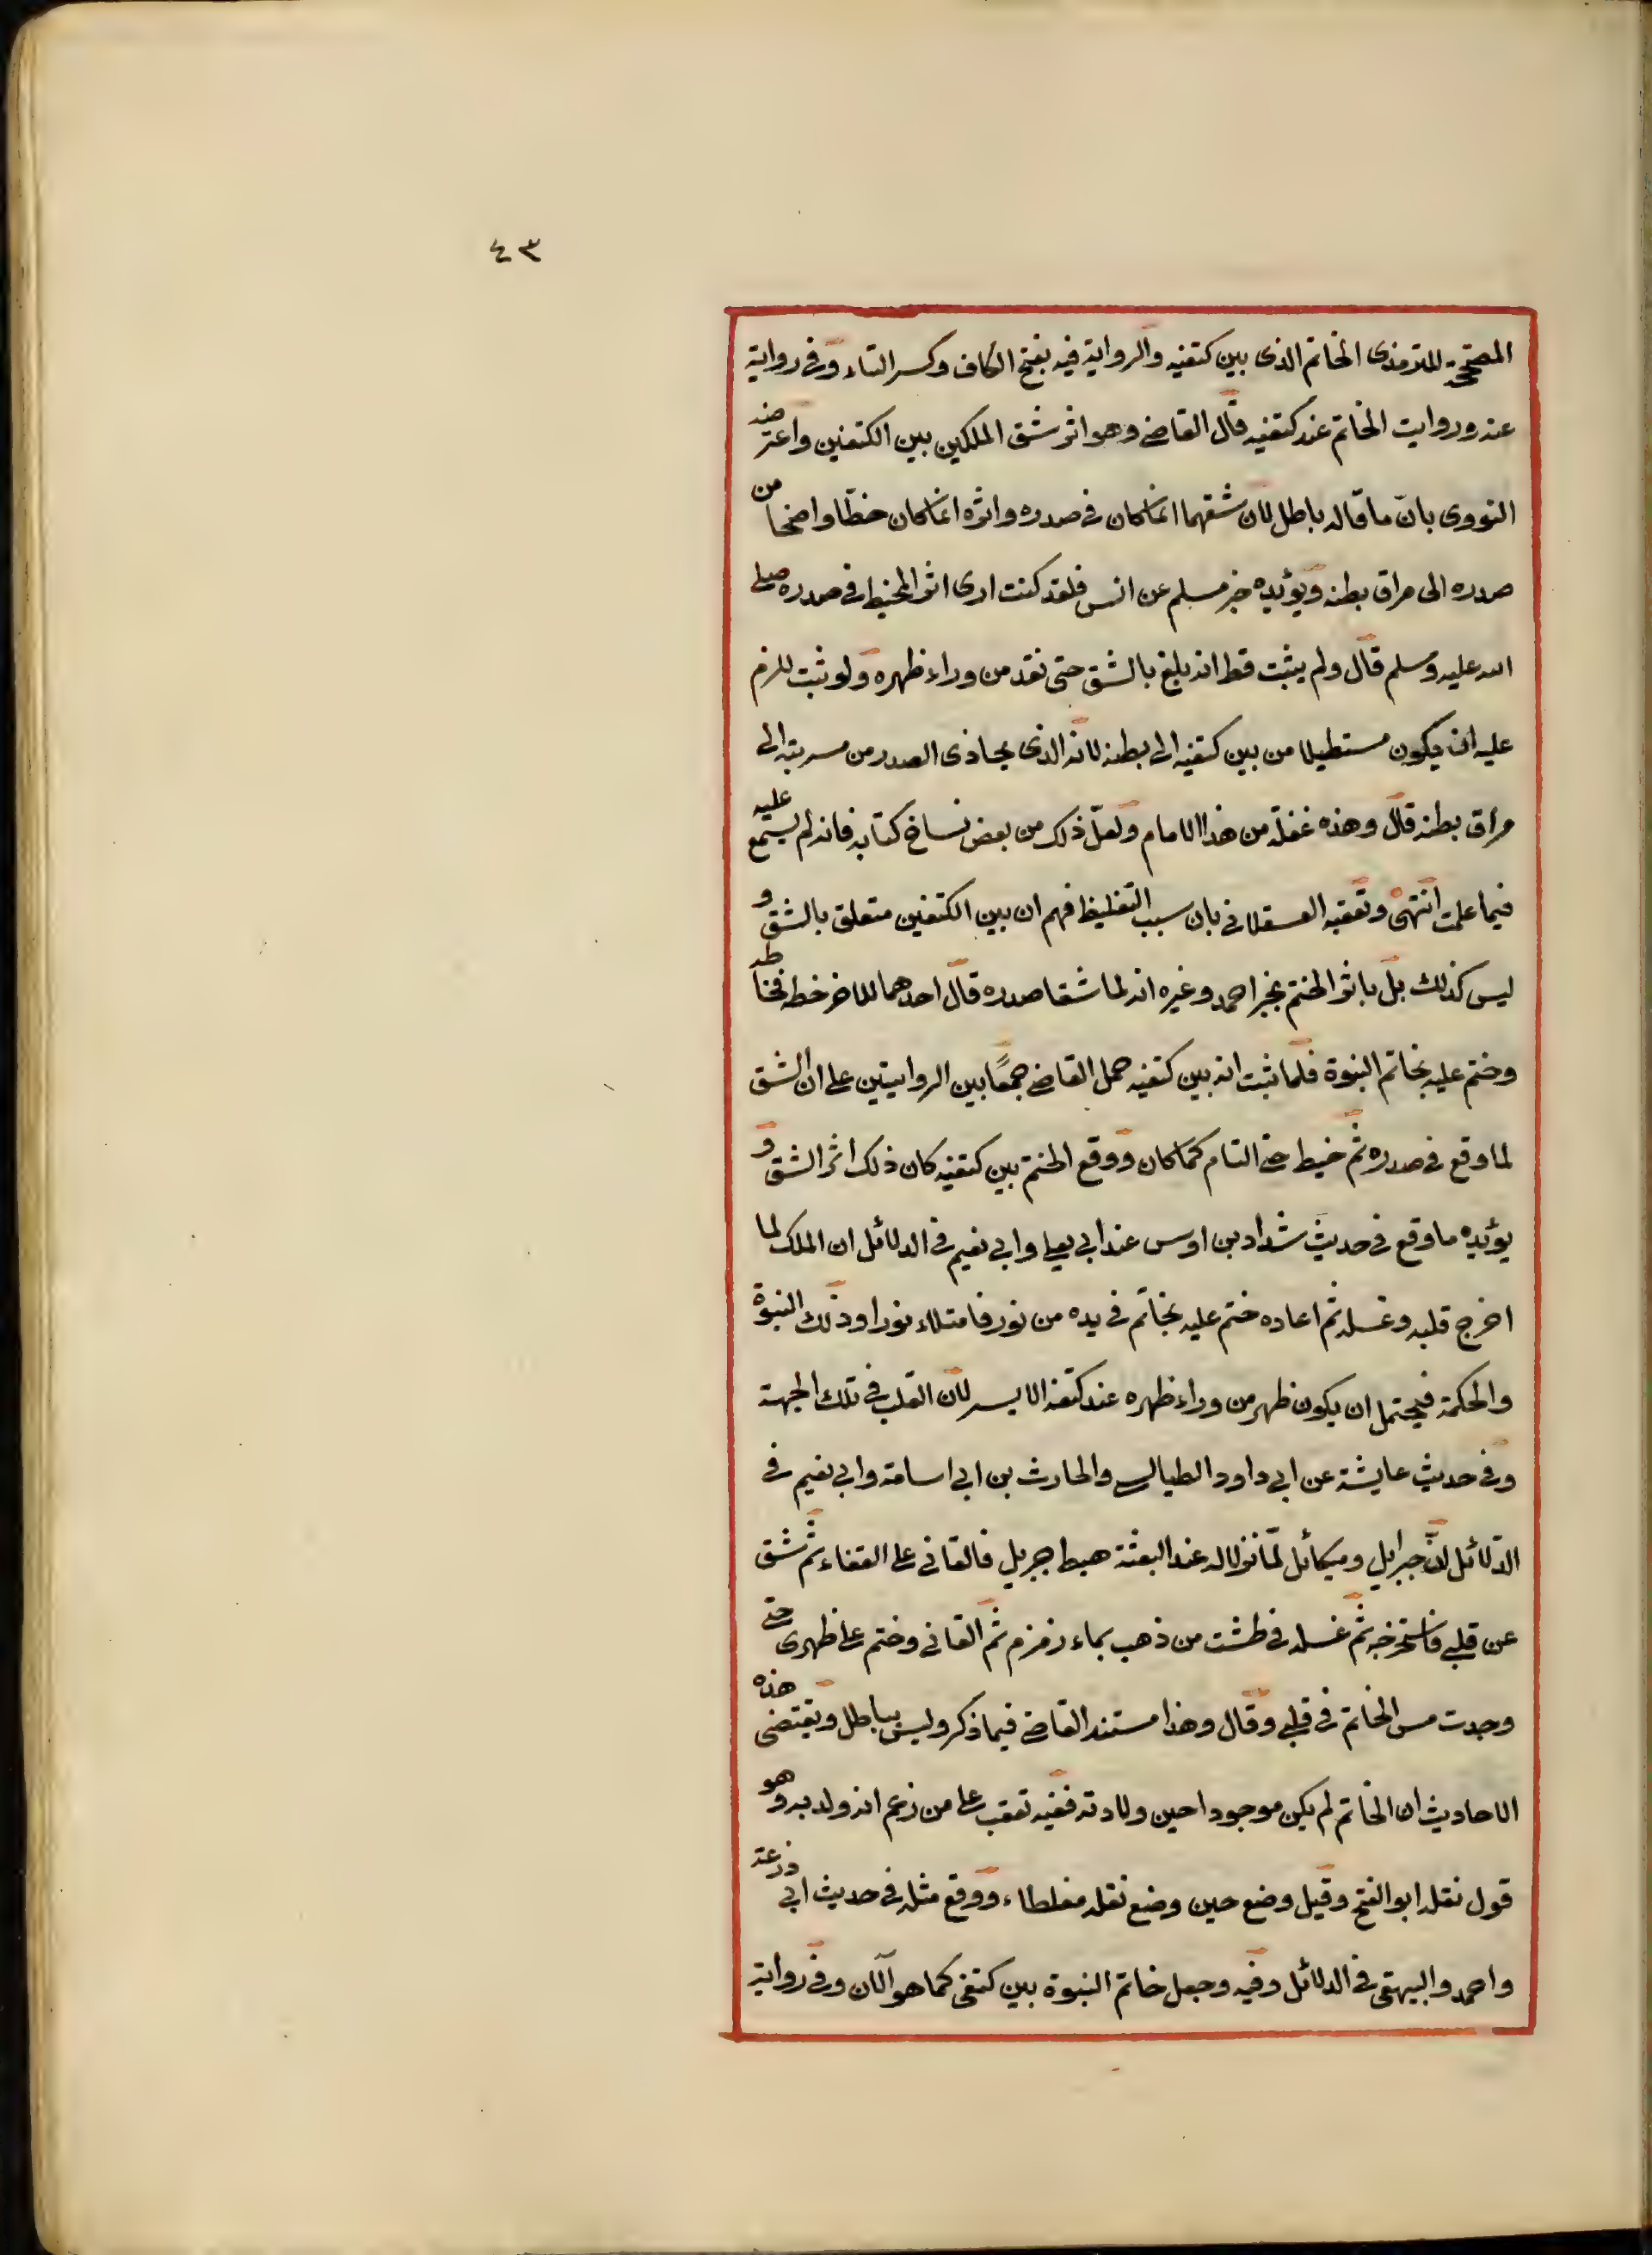 ٤٣
المصححة للترمذى الخاتم الذى بين كتفيه والرواية فيه بفتح الكاف وكسر التاء وفى رواية
عنه وروايت الخاتم عند كتفيه قال القاضى وهو اثر شق الملكين بين الكتفين واعترضه
النووى بانّ ما قاله باطل لان شقهما انما كان فى صدره واثره انما كان خطّا واضحا من
صدره الى مراق بطنه ويؤيده خبر مسلم عن انس فلقد كنت ارى اثر المخيط فى صدره صلى
الله عليه وسلم قال ولم يثبت قط انه بلغ بالشق حتى نفد من وراء ظهره ولو ثبت للزم
عليه ان يكون مستطيلا من بين كتفيه الى بطنه لانه الذى يحاذى الصدر من مسربته الى
مراق بطنه قال وهذه غفلة من هذا الامام ولعلّ ذلك من بعض نساخ كتابه فانه لم يسمع عليه
فيما علمت انتهى وتعقبه العسقلانى بان سبب التغليظ فهم ان بين الكتفين متعلق بالشق و
ليس كذلك بل باثر الختم بخبر احمد وغيره انه لما شقا صدره قال احدهما للاخر خطه فخاطه
وختم عليه بخاتم النبوة فلما ثبت انه بين كتفيه حمل القاضى جمعًا بين الروايتين على ان الشق
لما وقع فى صدره ثم خيط حتى التام كما كان ووقع الختم بين كتفيه كان ذلك اثر الشق و
يؤيده ما وقع فى حديث شداد بن اوس عند ابى يعلى وابى نعيم فى الدلائل ان الملك لما
اخرج قلبه وغسله ثم اعاده ختم عليه بخاتم فى يده من نور فامتلاء نورا وذلك النبوة
والحكمة فيحتمل ان يكون ظهر من وراء ظهره عند كتفه الايسر لان القلب فى تلك الجهة
وفى حديث عايشة عن ابى داود الطيالسى والحارث بن ابى اسامة وابى نعيم فى
الدلائل انّ جبرايل وميكائل لمّا نزلا له عند البعثة هبط جبريل فالقانى على القفاء ثم شق
عن قلبى فاستخرجه ثم غسله فى طشت من ذهب بماء زمزم ثم القانى وختم على ظهرى حتى
وجدت مس الخاتم فى قلبى وقال وهذا مستند القاضى فيما ذكر وليس بباطل ويقتضى هذه
الاحاديث ان الخاتم لم يكن موجودا حين ولادته ففيه تعقب على من زعم انه ولد به وهو
قول نقله ابو الفتح وقيل وضع حين وضع نقله مغلطاء ووقع مثله فى حديث ابى ذرعة
واحمد والبيهقى فى الدلائل وفيه وجعل خاتم النبوة بين كتفى كما هو الآن وفى رواية